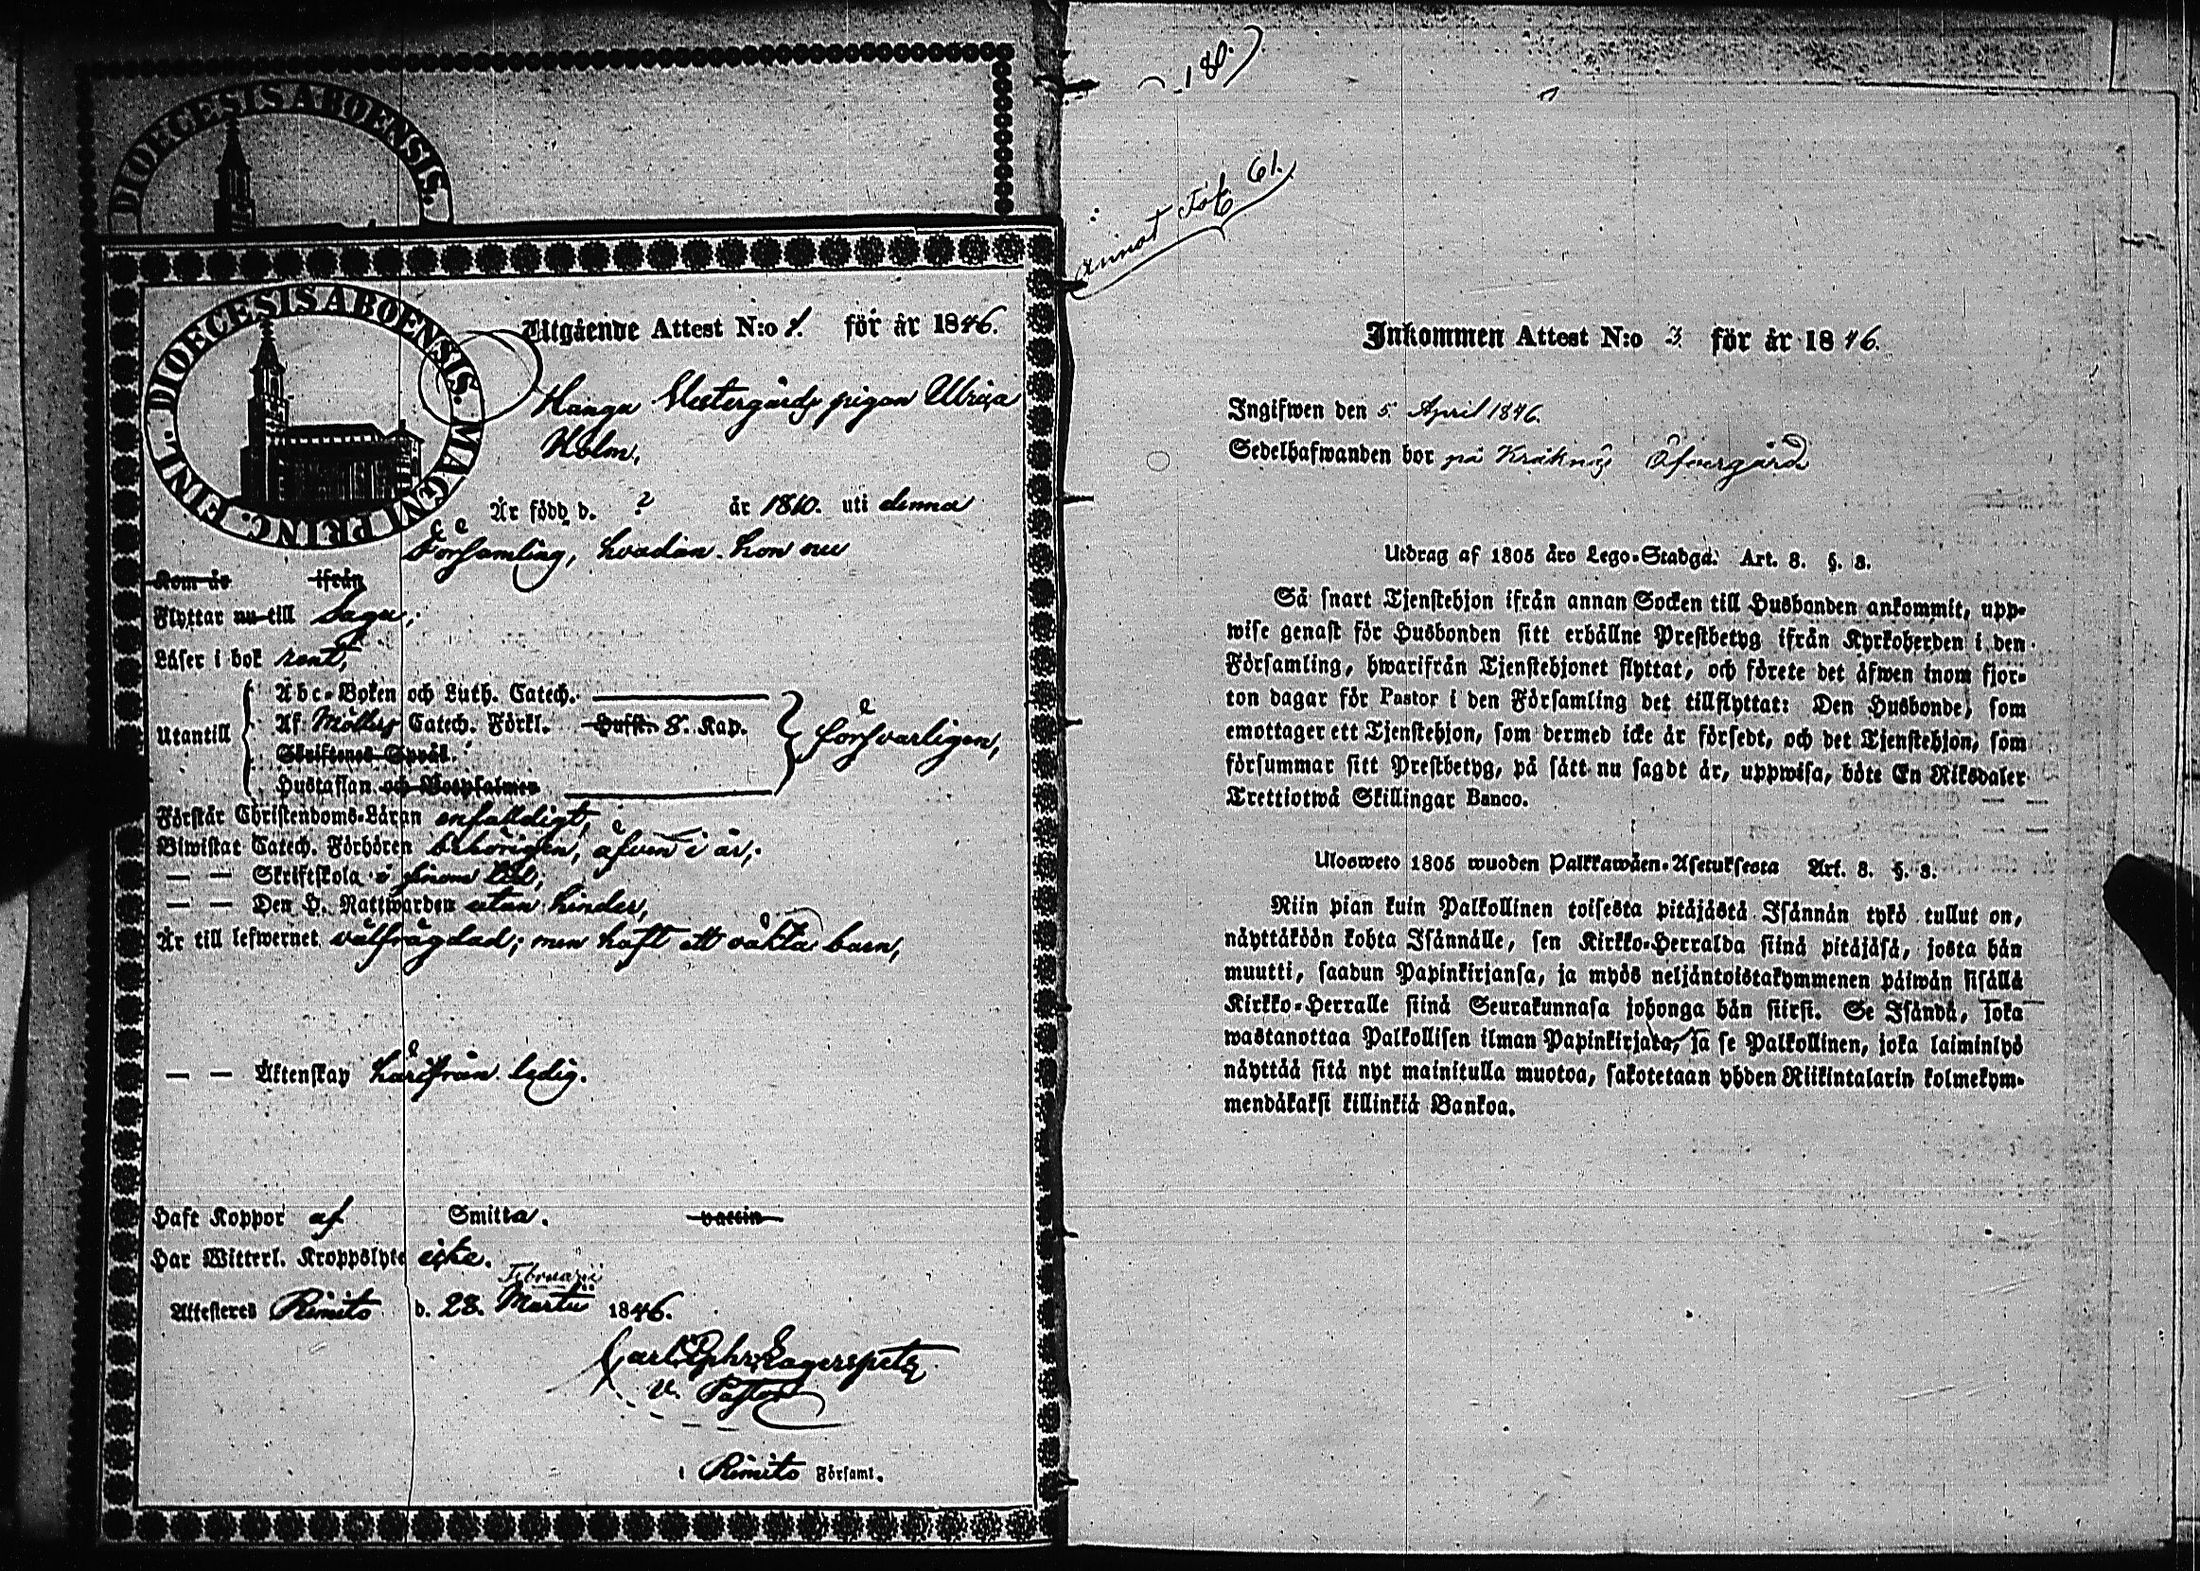 DIOECESIS ABOENSIS.
DIOECESIS ABOENSIS. MAGNI PRINC. FINL.
Utgående Attest N:o 1. för år 1846.
Hanga Westergårds pigan Ulrica
Holm,
Är född d. ? år 1810. uti denna
Församling, hvadan hon nu
Kom år ifrån
Flyttar nu till Sagu;
Läser i bok rent,
Utantill
Abc-Boken och Luth. Catech.
Af Möllers Catech. Förkl. Hufst. 8. Kap.
Skriftenes Språk.
Hustaflan och Botpsalmer
försvarligen,
Förstår Christendoms-Läran enfaldigt,
Biwistat Catech. Förhören behörigen, äfven i år,
— — Skriftskola
— — Den H. Nattwarden utan hinder,
Är till lefwernet välfrägdad; men haft ett oäkta barn,
— — Äktenskap härifrån ledig.
Haft Koppor af Smitta. vaccin
Har Witterl. Kroppslyte icke.
Februarii
Attesteras Rimito d. 28. Martii 1846.
Carl Ephr. Lagerspetz
v. Pastor
i Rimito Församl.
180
annot Fol. 61.
Inkommen Attest N:o 3 för år 1846.
Ingifwen den 5 April 1846.
Sedelhafwanden bor på Kråknäs Öfvergård
Utdrag af 1805 års Lego-Stadga. Art. 8. §. 3.
Så snart Tjenstehjon ifrån annan Socken till Husbonden ankommit, upp-
wise genast för Husbonden sitt erhållne Prestbetyg ifrån Kyrkoherden i den
Församling, hwarifrån Tjenstehjonet flyttat, och förete det äfwen inom fjor-
ton dagar för Pastor i den Församling det tillflyttat: Den Husbonde, som
emottager ett Tjenstehjon, som dermed icke är försedt, och det Tjenstehjon, som
försummar sitt Prestbetyg, på sätt nu sagdt är, uppwisa, böte En Riksdaler
Trettiotwå Skillingar Banco.
Ulosweto 1805 wuoden Palkkawäen-Asetuksesta Art. 8. §. 3.
Niin pian kuin Palkollinen toisesta pitäjästä Isännän tykö tullut on,
näyttäköön kohta Isännälle, sen Kirkko-Herralda siinä pitäjäsä, josta hän
muutti, saadun Papinkirjansa, ja myös neljäntoistakymmenen päiwän sisällä
Kirkko-Herralle siinä Seurakunnasa johonga hän siirsi. Se Isändä, joka
wastanottaa Palkollisen ilman Papinkirjata, ja se Palkollinen, joka laiminlyö
näyttää sitä nyt mainitulla muotoa, sakotetaan yhden Riikintalarin kolmekym-
mendäkaksi killinkiä Bankoa.